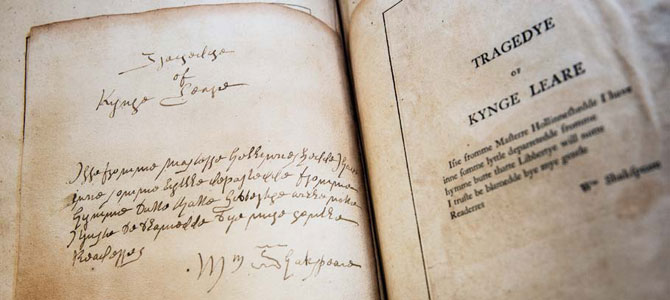 Tragedye
of
Kynge Leare
fromme Masterre Hollinneshedde I have
inne somme lyttle departedde fromme
hymme butte thatte Libbertye
I truste be blamedde bye mye gentle
Readerres
Wm Shakspeare
TRAGEDYE
OF
KYNGE LEARE
Iffe fromme Masterre Hollinneshedde I have
inne somme lyttle departedde fromme
hymme butte thatte Libbertye will notte
I truste be blamedde bye mye gentle
Readerres
Wm Shakspeare